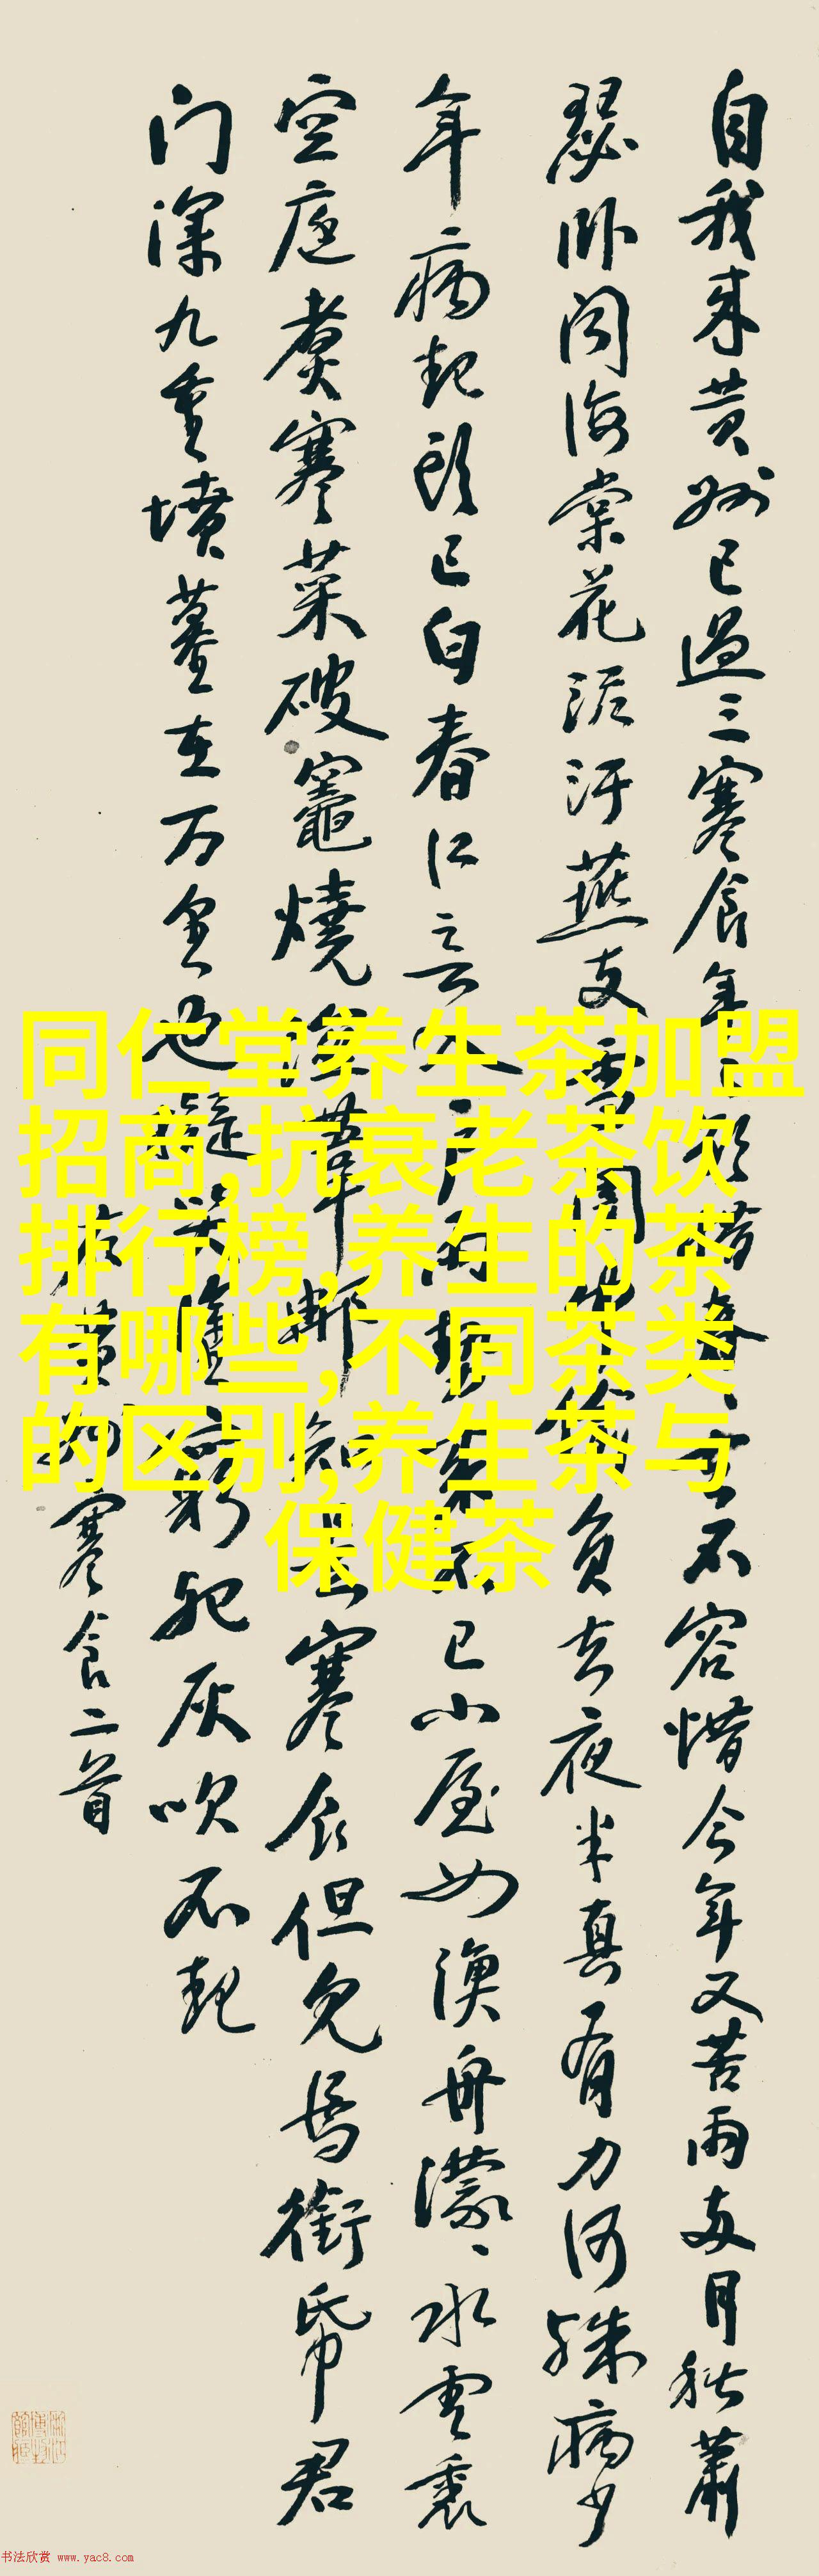 自我来黄州已過三寒食年年欲惜春春去不容惜今年又苦雨两月秋蕭
瑟卧闻海棠花泥汙燕支雪闇中偷負去夜半真有力何殊病少
年病起頭已白春江入户雨势来不已小屋如漁舟濛濛水雲裏
空庖煮寒菜破竈燒湿葦那知是寒食但見烏銜帋君
门深九重墳墓在万里也擬哭塗窮死灰吹不起
黄州寒食二首
同仁堂养生茶加盟
招商,抗衰老茶饮
排行榜,养生的茶
有哪些,不同茶类
的区别,养生茶与
保健茶
书法欣赏 www.yac8.com